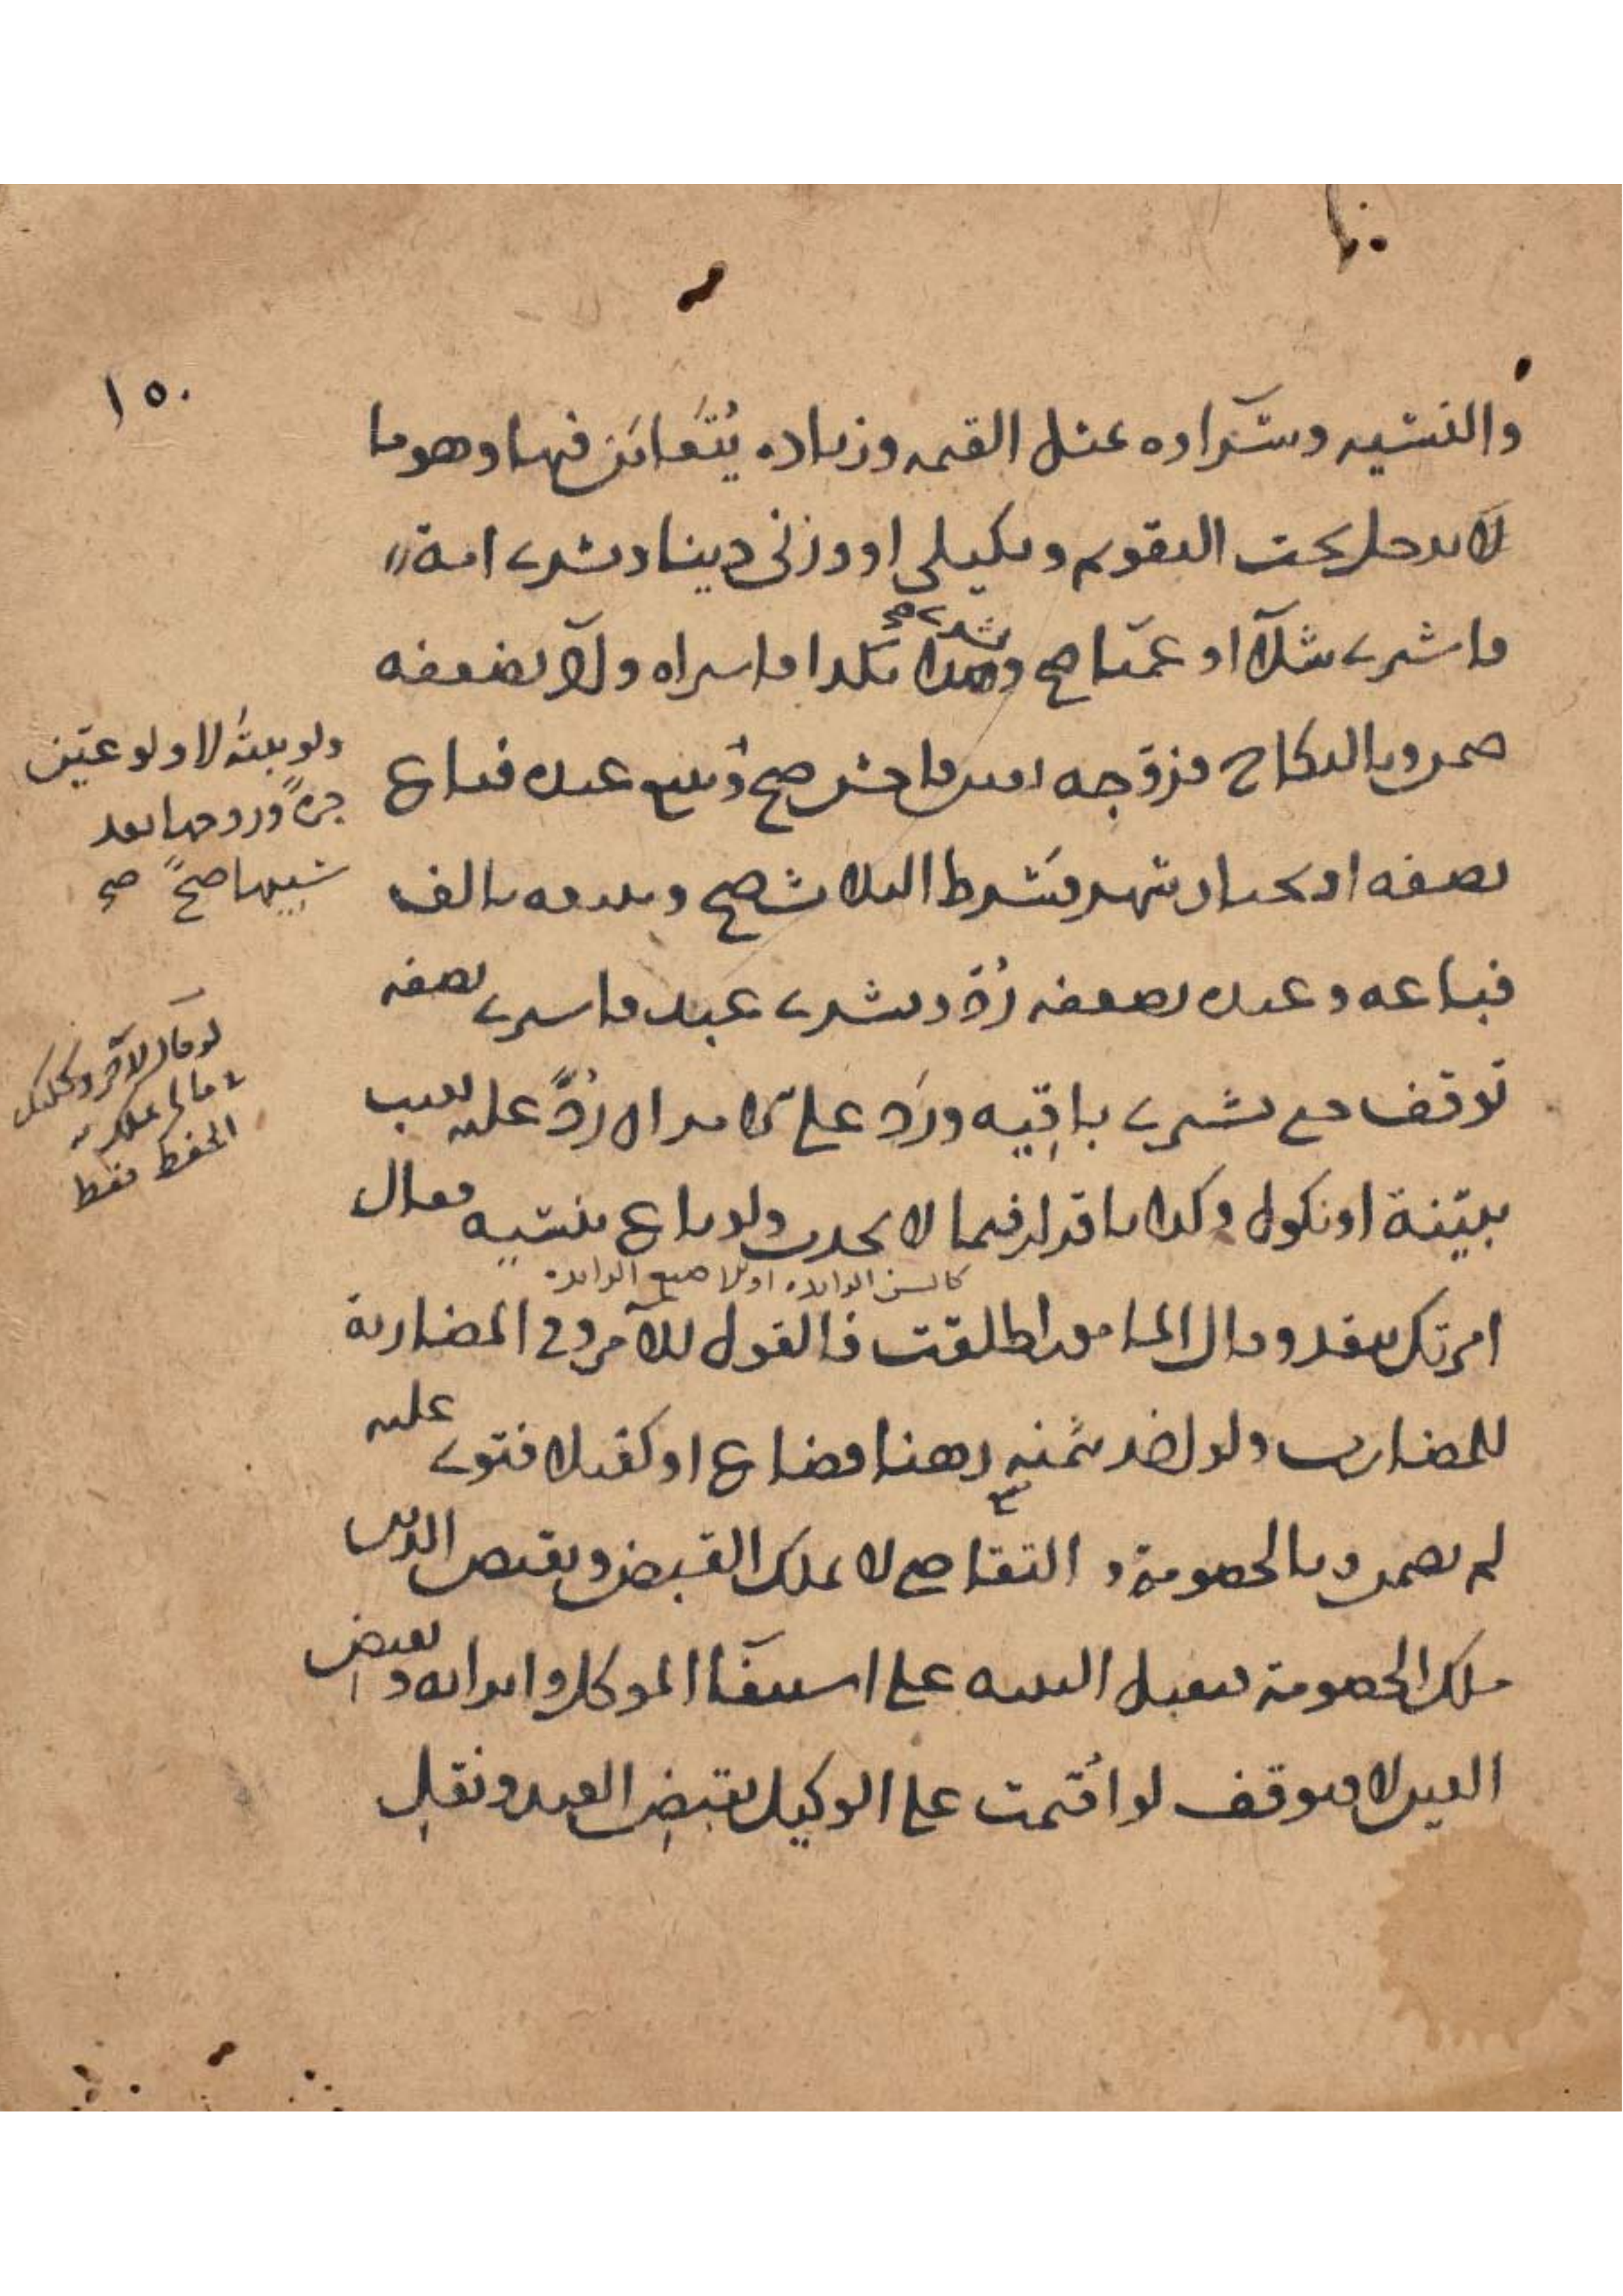 ١٥٠
والنسيه وشراوه بمثل القيمه وزياده يُتَغابَن فيها وهو ما
لا يدخل تحت التقويم وبكيلي او وزني دينا وبشرى امة
فاشرى شلآ او عميا صح وبشرى هذا بكذا فاشراه ولا بضعفه
صح وبالنكاح فزوجه بغبن فاحش صح وببيع عبده فباع
نصفه او بخيار شهر فشرط الثلاث صح وببيعه بالف
فباعه وعبده بضعفه رُدّ وبشرى عبد فاشرى نصفه
توقف مع بشرى باقيه ورَدّ على الآمر ان رُدَّ عليه بعيب
ببيّنة او نكول وكذا باقرار فيما لا يحدث ولو باع بنسيه فقال
كالسن الزايده او الاصبع الزايده
امرتك بنقد وقال المامور اطلقت فالقول للآمر وفي المضاربة
للمضارب ولو اخذ بثمنه رهنا فضاع او كفيلا فتوى عليه
لم يضمن وبالخصومة والتقاضي لا يملك القبض وبقبض الدين
ملك الخصومة فتقبل البينه على استيفآ الموكل وابرائه وبقبض
العين لا فتوقف لو اُقيمت على الوكيل بقبض العبد ونقل
ولو بينه لا ولو عيّن
حرةً وزوجها بعد
سبيها صحّ صح
لو قال لآخر وكلتك
في مالي ملك
الحفظ فقط